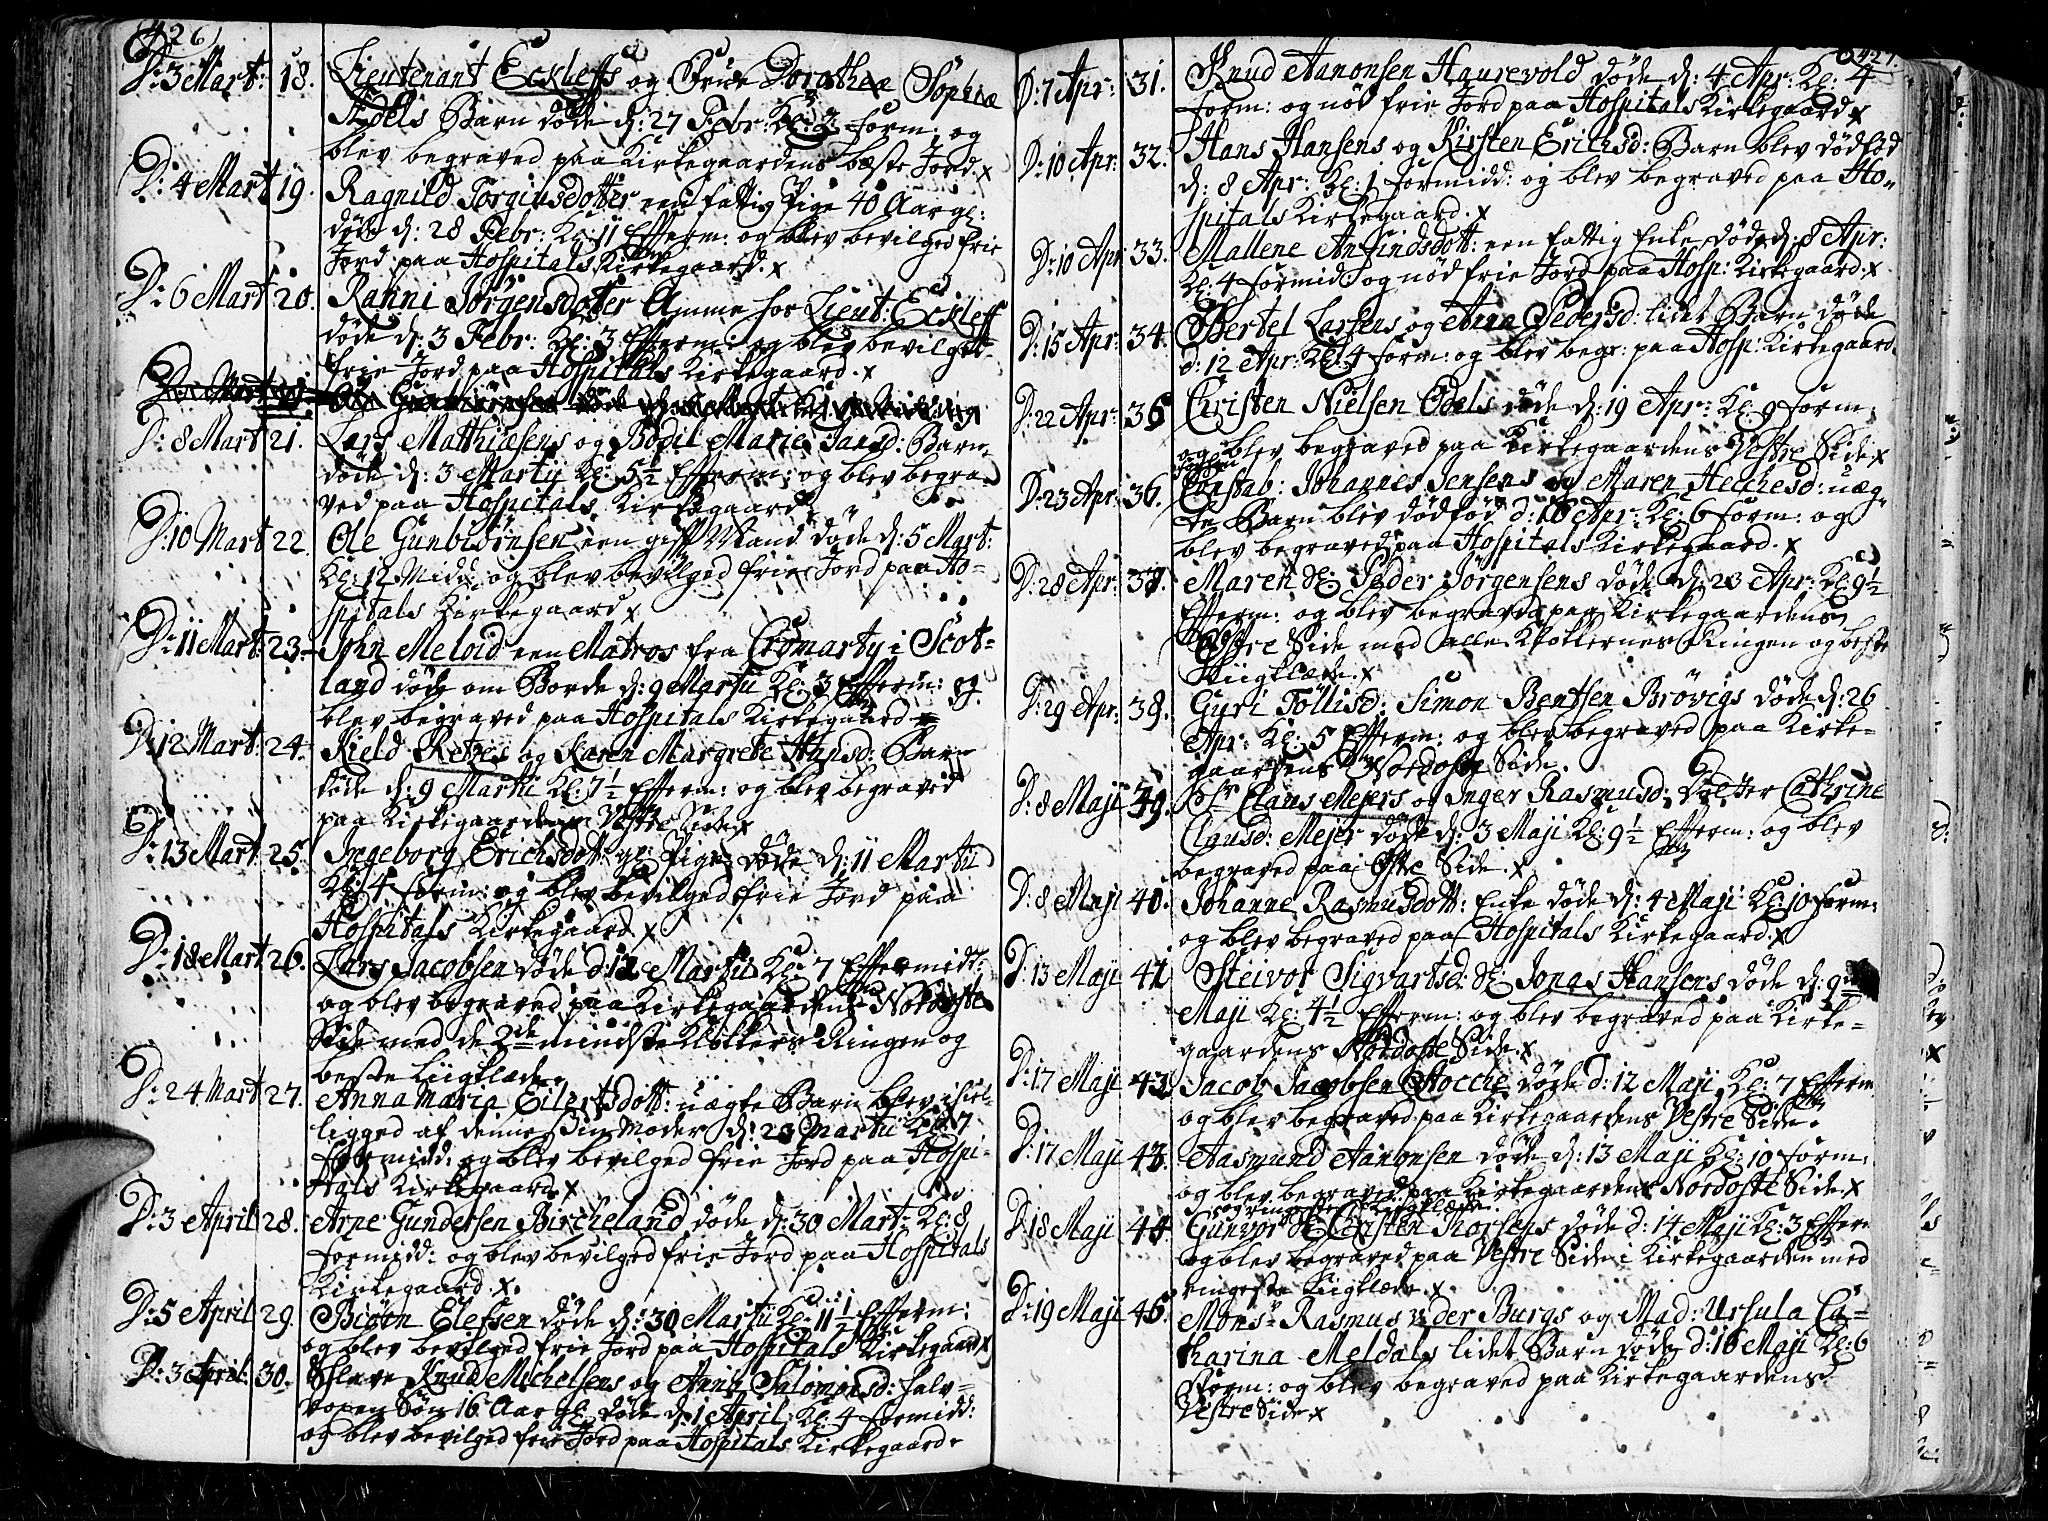 426
D: 3 Mart: 18. Lieutenant Eckleffs og Frue Dorotheæ Sophiæ
Adels Barn døde d: 27 Febr: Kl: 3 form: og
blev begraved paa Kirkegaardens bæste Jord. x
D: 4 Mart 19. Ragnild Torgiusdotter een fattig Pige 40 Aar gl:
døde d: 28 Febr: Kl: 11 Efferm: og blev bevilged frie
Jord paa Hospitals Kirkegaard. x
D: 6 Mart 20. Ranni Jörgensdotter Amme hos Lieut: Eckleff
døde d: 3 Febr: Kl: 3 Efferm: og blev bevilget
frie Jord paa Hospitals Kirkegaard. x
D: 8 Mart 21. Lars Matthiæsens og Bodil Marie Jansd: Barn
døde d: 3 Martij Kl: 5½ Efferm: og blev begra-
ved paa Hospitals Kirkegaard
D: 10 Mart 22. Ole Gunbiörnsen een gift Mand døde d: 5 Mart:
Kl: 12 Midd: og blev bevilged frie Jord paa Ho-
spitals Kirkegaard x
D: 11 Mart: 23. John Meloid een Matros fra Cromarty i Scot-
land døde om Borde d: 9 Martii Kl: 3 Efferm: og
blev begraved paa Hospitals Kirkegaard
D: 12 Mart: 24. Kield Retzes og Karen Margrete Hansd: Barn
døde d: 9 Martii Kl: 7½ Efferm: og blev begraved
paa Kirkegaardens Vestre Side x
D: 13 Mart: 25. Ingeborg Erichsdott: gl: Pige døde d: 11 Martii
Kl: 4 form: og blev bevilged frie Jord paa
Hospitals Kirkegaard x
D: 18 Mart 26. Lars Jacobsen døde d: 12 Martii Kl: 7 Eftermidt:
og blev begraved paa Kirkegaardens Nordoste
Side med de 2de mindste Klokkers Ringen og
beste Liigklæde.
D: 24 Mart: 27. Anna Maria Eilertsdott: uægte Barn blev ihiel-
ligged af dennes Sin Moder d: 23 Martii Kl: 7
Formidd: og blev bevilged frie Jord paa Hospi-
tals Kirkegaard. x
D: 3 April 28. Arne Gundersen Bircheland døde d: 30 Mart: Kl: 8
formidd: og blev bevilged frie Jord paa Hospitals
Kirkegaard x.
D: 5 April 29. Biörn Elefsen døde d: 30 Martii Kl: 11½ Efferm:
og blev bevilged frie Jord paa Hospitals Kirkegaard x
D: 3 April: 30. Slave Knud Michelsens og Anne Salomonsd: halv-
voxen Søn 16 Aar gl: døde d: 1 April: Kl: 4 formidd:
og blev bevilged frie Jord paa Hospitals Kirkegaard.
427.
D: 7 Apr: 31. Knud Aanonsen Haurevold døde d: 4 Apr: Kl: 4
form: og nød frie Jord paa Hospitals Kirkegaard x
D: 10 Apr: 32. Hans Hansens og Kirsten Erichsd: Barn blev dødfød
d: 8 Apr: Kl: 1 formidd: og blev begraved paa Ho-
spitals Kirkegaard. x
D: 10 Apr 33. Mallene Anfindsdott: een fattig Enke døde d: 8 Apr:
Kl: 4 formid: og nød frie Jord paa Hosp: Kirkegaard. x
D: 15 Apr: 34. Bertel Larsens og Anna Pedersd: lidet Barn døde
d: 12 Apr: Kl: 4 form: og blev begr: paa Hosp: Kirkegaard.
D: 22 Apr: 35 Christen Nielsen Odels døde d: 19 Apr: Kl: 9 form:
og blev begraved paa Kirkegaardens Vestre Side x
D: 23 Apr: 36. Constab: Johannes Jensens og Maren Hechesd: uæg-
te Barn blev dødfød d: 16 Apr: Kl: 6 form: og
blev begraved paa Hospitals Kirkegaard. x
D: 28 Apr: 37. Maren Sl: Peder Jörgensens døde d: 23 Apr: Kl: 9½
Efferm: og blev begraved paa Kirkegaardens
Østre Side med alle Klokkernes Ringen og beste
Liigklæde. x
D: 29 Apr: 38. Gyri Töllisd: Simon Bentsen Brövigs døde d: 26
Apr: Kl: 5 Efferm: og blev begraved paa Kirke-
gaardens Nordoste Side.
D: 8 Maji 39. Sr Claus Mejers og Inger Rasmusd: Dotter Cathrine
Clausd: Mejer døde d: 3 Maji Kl: 9½ Efferm: og blev
begraved paa Østre Side. x
D: 8 Maji 40. Johanne Rasmusdott: Enke døde d: 4 Maji Kl: 10 form:
og blev begraved paa Hospitals Kirkegaard. x
D: 13 Maji 41 Steivor Sigvartsd: Sl: Jonas Hansens døde d: 9
Maji Kl: 4½ Efferm: og blev begraved paa Kirke-
gaardens Nordoste Side. x
D: 17 Maji 42 Jacob Jacobsen Stocche døde d: 12 Maji Kl: 7 Efferm
og blev begraved paa Kirkegaardens Vestre Side.
D: 17 Maji 43. Aasmund Aanonsen døde d: 13 Maji Kl: 10 form:
og blev begraved paa Kirkegaardens Nordoste Side. x
D: 18 Maji 44 Gunvor Sl: Christen Thorsens døde d: 14 Maji Kl: 3 Efferm
og blev begraved paa Vestre Side i Kirkegaarden med
ringeste Liigklæde. x
D: 19 Maji 45. Monsr Rasmus v der Burgs og Mad: Ursula Ca-
tharina Meldals lidet Barn døde d: 16 Maji Kl: 6
Form: og blev begraved paa Kirkegaardens
Vestre Side x